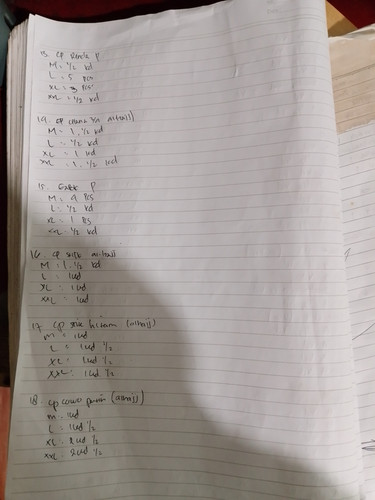 13. cp renda P
M = 1/2 kd
L = 5 pcs
XL = 3 pcs
XXL = 1/2 kd
14. cp
M = 1. 1/2 kd
L = 1/2 kd
XL = 1 kd
XXL = 1. 1/2 kd
15. P
M = 4 pcs
L = 1/2 kd
XL = 1 pcs
XXL = 1/2 kd
16. cp
M = 1. 1/2 kd
L = 1 kd
XL = 1 kd
XXL = 1 kd
17. cp hitam
M = 1 kd
L = 1 kd 1/2
XL = 1 kd 1/2
XXL = 1 kd 1/2
18. cp
M = 1 kd
L = 1 kd 1/2
XL = 2 kd 1/2
XXL = 2 kd 1/2